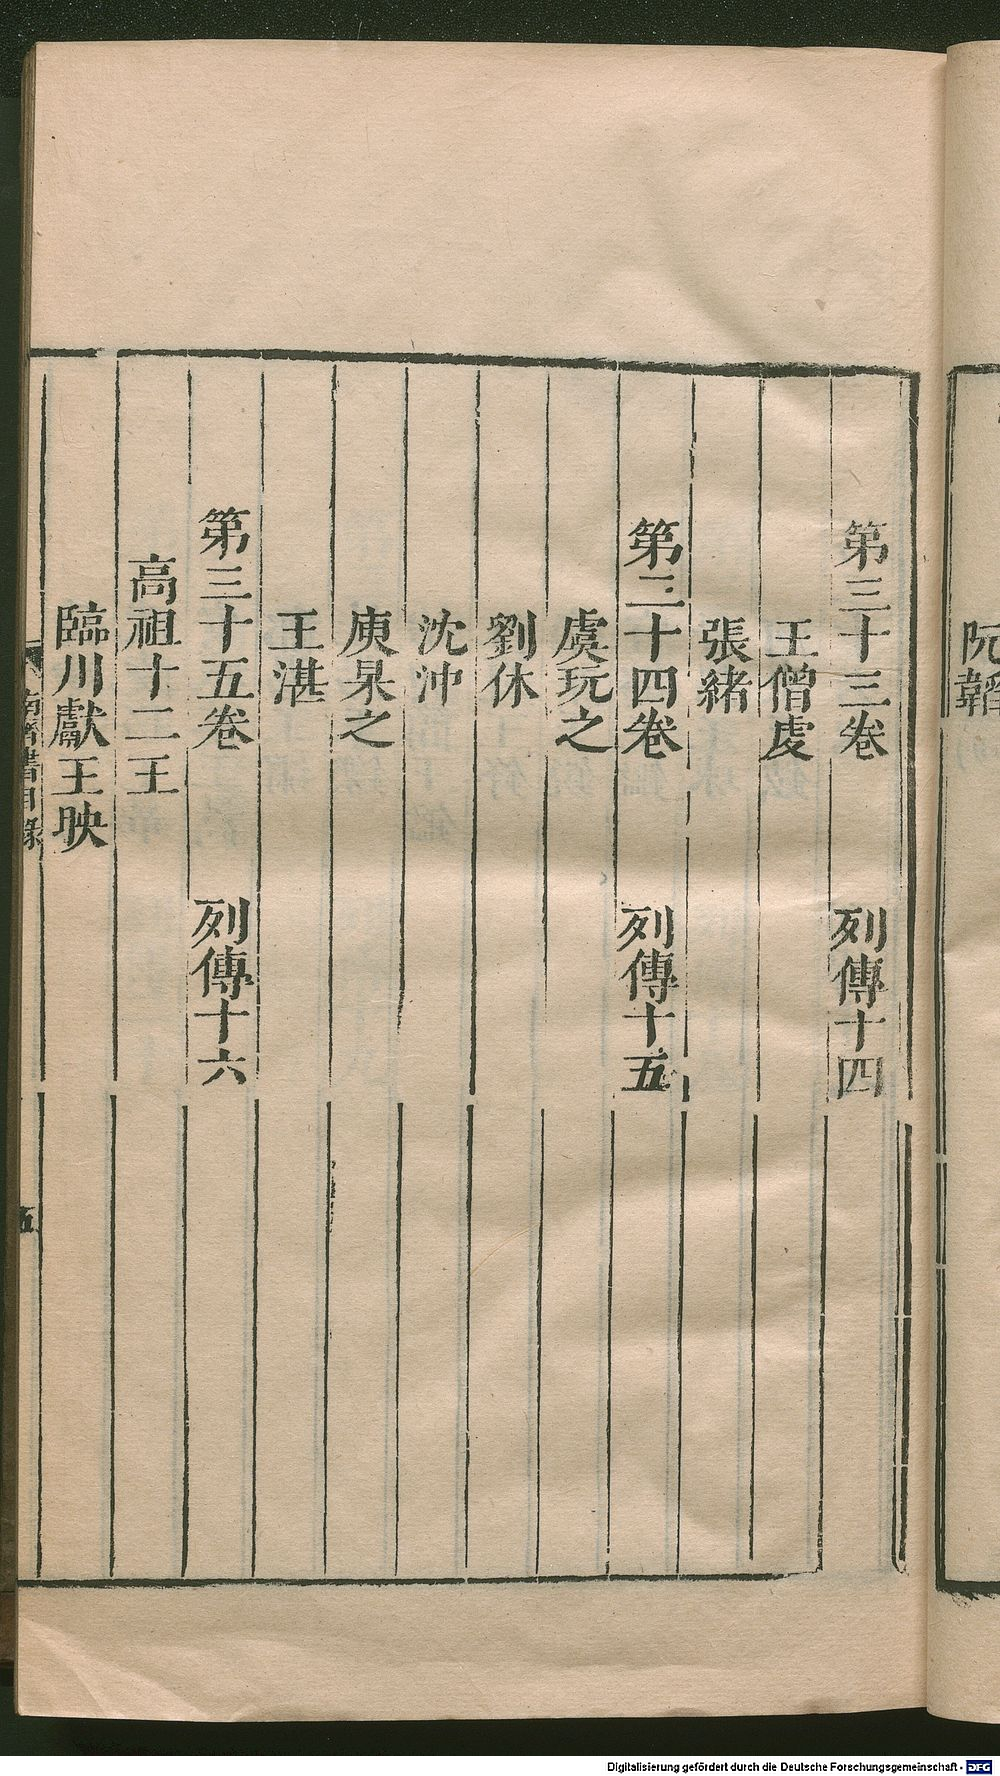 阮韜
第三十三卷 列傳十四
王僧虔
張緒
第三十四卷 列傳十五
虞玩之
劉休
沈沖
庾杲之
王諶
第三十五卷 列傳十六
高祖十二王
臨川獻王映
南齊書目錄 五
Digitalisierung gefördert durch die Deutsche Forschungsgemeinschaft - DFG